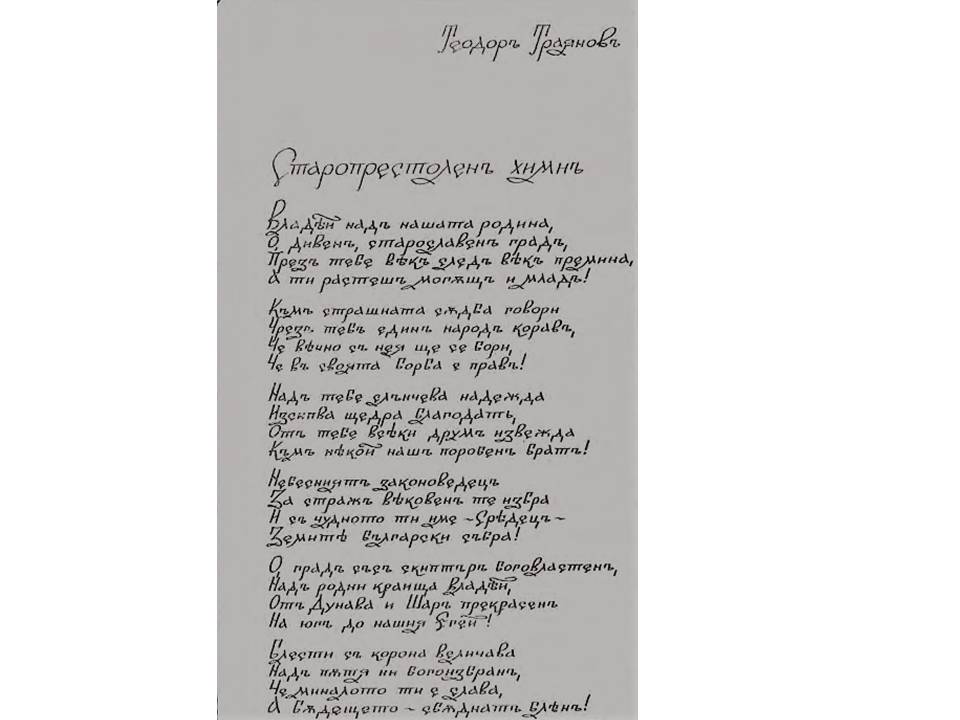 Теодоръ Траяновъ
Старопрестоленъ химнъ
Владѣй надъ нашата родина,
О, дивенъ, старославенъ градъ,
Презъ тебе вѣкъ следъ вѣкъ премина,
А ти растешъ могѫщъ и младъ!
Къмъ страшната сѫдба говори
Чрезъ тебъ единъ народъ коравъ,
Че вѣчно съ нея ще се бори,
Че въ своята борба е правъ!
Надъ тебе слънчева надежда
Изсипва щедра благодать,
Отъ тебе всѣки друмъ извежда
Къмъ нѣкой нашъ поробенъ братъ!
Небесниятъ законоведецъ
За стражъ вѣковенъ те избра
И съ чудното ти име ~ Срѣдецъ ~
Земитѣ български събра!
О, градъ съсъ скиптъръ боговластенъ,
Надъ родни краища владѣй,
Отъ Дунава и Шаръ прекрасенъ
На югъ до нашия Егей!
Блести съ корона величава
Надъ пѫтя ни богоизбранъ,
Че миналото ти е слава,
А бѫдещето ~ сбѫднатъ блѣнъ!